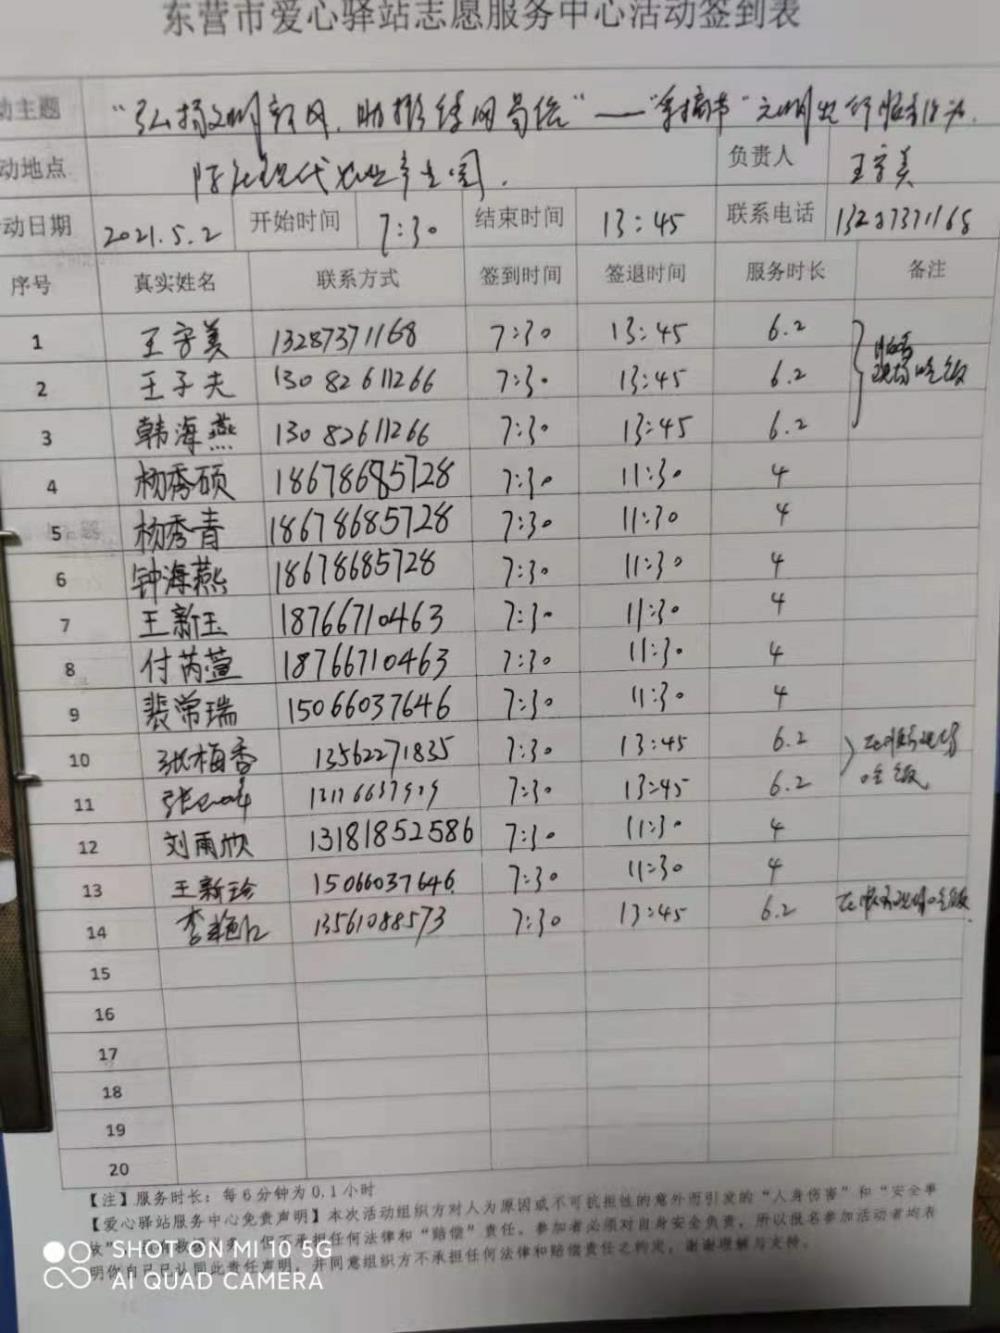 东营市爱心驿站志愿服务中心活动签到表
动主题 "弘扬文明新风,助推 "——"采摘节"文明
动地点 现代农业 园. 负责人 王守美
动日期 2021.5.2 开始时间 7:30 结束时间 13:45 联系电话 13287371168
序号 真实姓名 联系方式 签到时间 签退时间 服务时长 备注
1 王守美 13287371168 7:30 13:45 6.2
2 王子夫 13082611266 7:30 13:45 6.2 现场吃饭
3 韩海燕 13082611266 7:30 13:45 6.2
4 杨秀硕 18678685728 7:30 11:30 4
5 杨秀青 18678685728 7:30 11:30 4
6 钟海燕 18678685728 7:30 11:30 4
7 王新玉 18766710463 7:30 11:30 4
8 付芮萱 18766710463 7:30 11:30 4
9 裴常瑞 15066037646 7:30 11:30 4
10 张梅香 13562271835 7:30 13:45 6.2 在服务现场
11 张 7:30 13:45 6.2 吃饭
12 刘雨欣 13181852586 7:30 11:30 4
13 王新珍 15066037646 7:30 11:30 4
14 李艳红 13561088573 7:30 13:45 6.2 在服务现场吃饭
15
16
17
18
19
20
【注】服务时长:每6分钟为0.1小时
【爱心驿站服务中心免责声明】本次活动组织方对人为原因或不可抗担性的意外而引发的"人身伤害"和"安全事
故" 但不承担任何法律和"赔偿"责任。参加者必须对自身安全负责,所以报名参加活动者均表
明你自己已认同此责任声明,并同意组织方不承担任何法律和赔偿责任之约定,谢谢理解与支持。
SHOT ON MI 10 5G
AI QUAD CAMERA